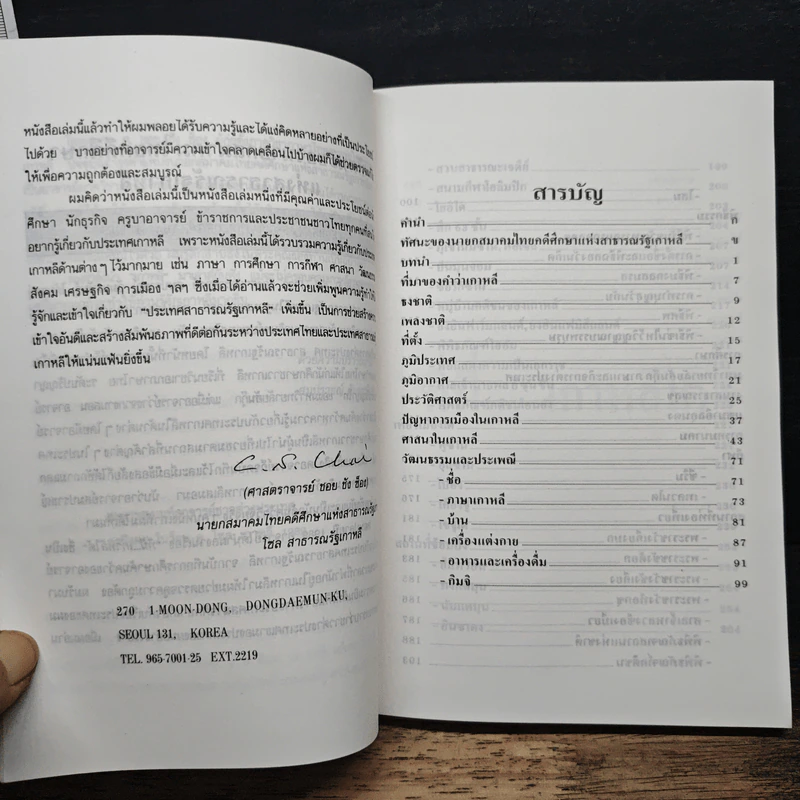 หนังสือเล่มนี้แล้วทำให้ผมพลอยได้รับความรู้และได้แง่คิดหลายอย่างที่เป็นประโยชน์
ไปด้วย บางอย่างที่อาจารย์มีความเข้าใจคลาดเคลื่อนไปบ้างผมก็ได้ช่วยตรวจแก้
ให้เพื่อความถูกต้องและสมบูรณ์
ผมคิดว่าหนังสือเล่มนี้เป็นหนังสือเล่มหนึ่งที่มีคุณค่าและประโยชน์ต่อ
ศึกษา นักธุรกิจ ครูบาอาจารย์ ข้าราชการและประชาชนชาวไทยทุกคนที่
อยากรู้เกี่ยวกับประเทศเกาหลี เพราะหนังสือเล่มนี้ได้รวบรวมความรู้เกี่ยวกับประเทศ
เกาหลีด้านต่างๆ ไว้มากมาย เช่น ภาษา การศึกษา การกีฬา ศาสนา วัฒนธรรม
สังคม เศรษฐกิจ การเมือง ฯลฯ ซึ่งเมื่อได้อ่านแล้วจะช่วยเพิ่มพูนความรู้ทำให้
รู้จักและเข้าใจเกี่ยวกับ "ประเทศสาธารณรัฐเกาหลี" เพิ่มขึ้น เป็นการช่วยสร้างความ
เข้าใจอันดีและสร้างสัมพันธภาพที่ดีต่อกันระหว่างประเทศไทยและประเทศสาธารณรัฐ
เกาหลีให้แน่นแฟ้นยิ่งขึ้น
C. S. Choi
(ศาสตราจารย์ ชอย ชัง ซ้อง)
นายกสมาคมไทยคดีศึกษาแห่งสาธารณรัฐเกาหลี
โซล สาธารณรัฐเกาหลี
270 1-MOON-DONG, DONGDAEMUN-KU,
SEOUL 131, KOREA
TEL. 965-7001-25 EXT.2219
สารบัญ
คำนำ ก
ทัศนะของนายกสมาคมไทยคดีศึกษาแห่งสาธารณรัฐเกาหลี ข
บทนำ 1
ที่มาของคำว่าเกาหลี 7
ธงชาติ 9
เพลงชาติ 12
ที่ตั้ง 15
ภูมิประเทศ 17
ภูมิอากาศ 21
ประวัติศาสตร์ 25
ปัญหาการเมืองในเกาหลี 37
ศาสนาในเกาหลี 43
วัฒนธรรมและประเพณี 71
- ชื่อ 71
- ภาษาเกาหลี 73
- บ้าน 81
- เครื่องแต่งกาย 87
- อาหารและเครื่องดื่ม 91
- กิมจิ 99